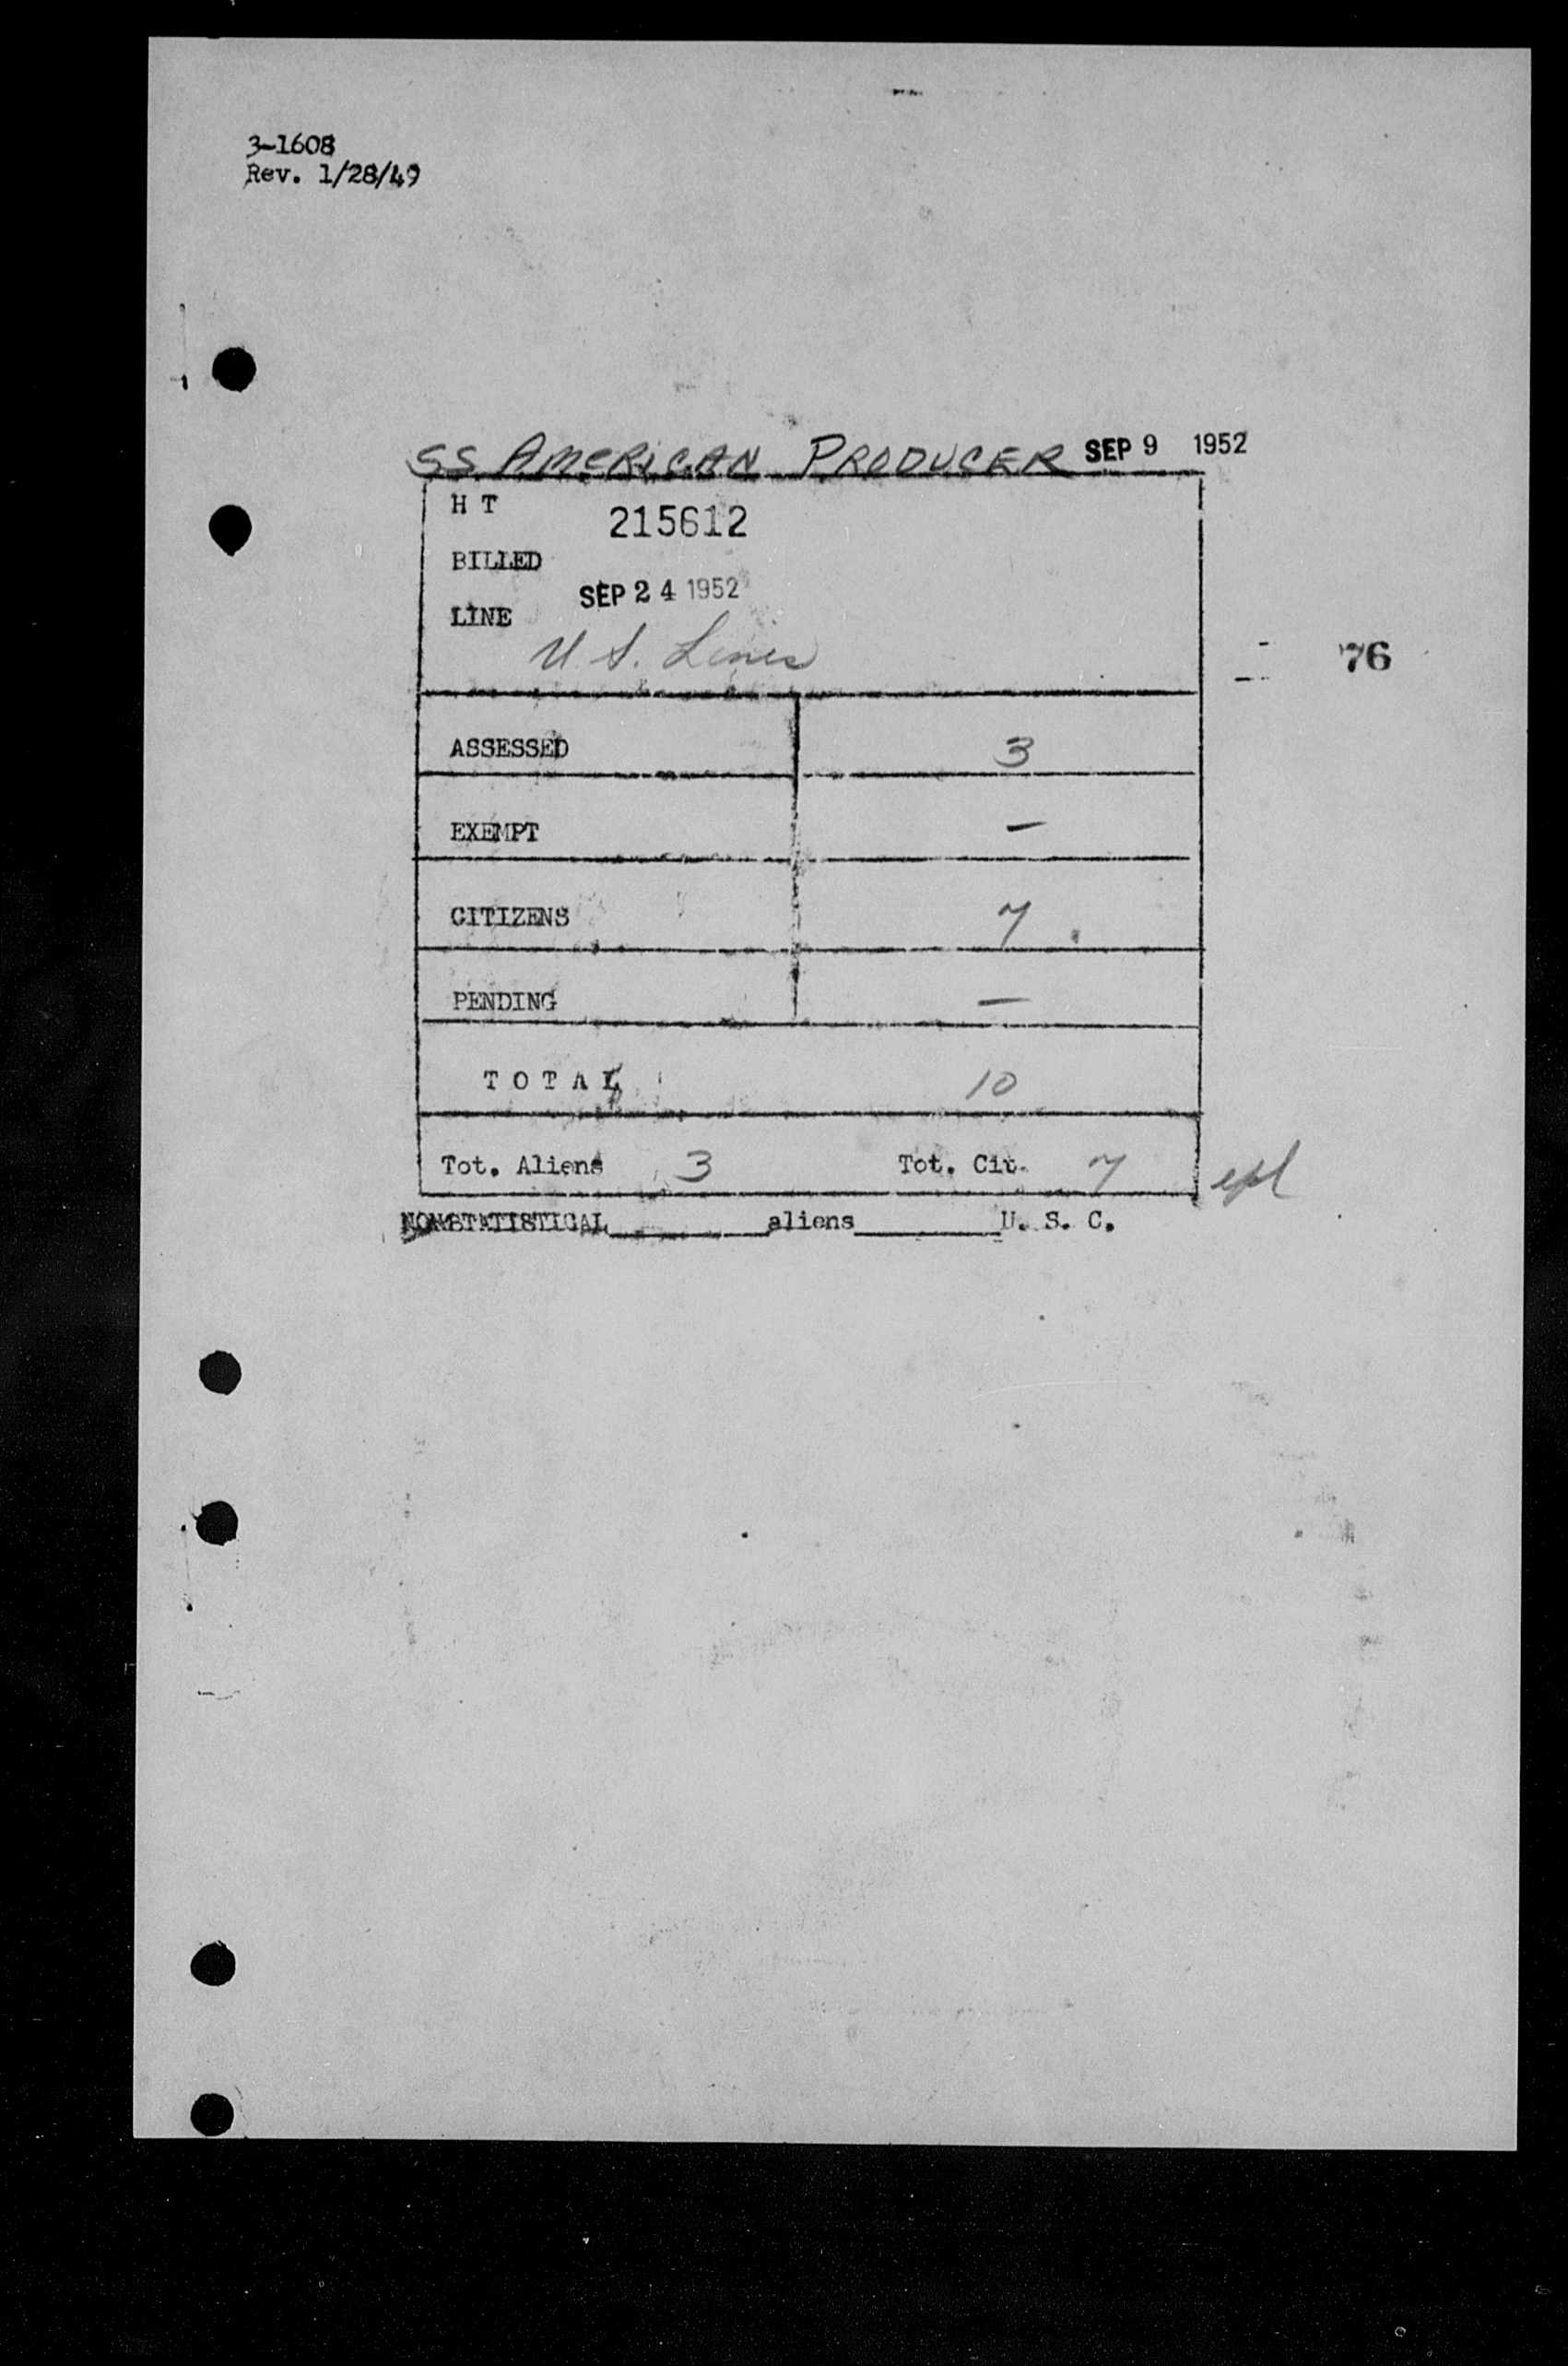 3-1608
Rev. 1/28/49
SS AMERICAN PRODUCER SEP 9 1952
H T
215612
BILLED
SEP 24 1952
LINE
U. S. Lines
76
ASSESSED 3
EXEMPT —
CITIZENS 7
PENDING —
T O T A L 10
Tot. Aliens 3 Tot. Cit. 7
NONSTATISTICAL__________aliens__________U. S. C.